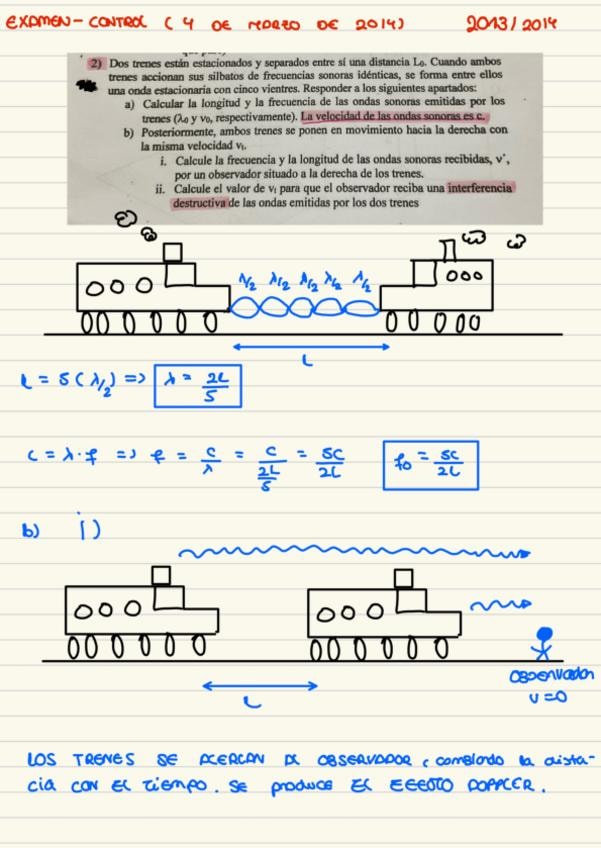 EXAMEN-CONTROL (4 DE MARZO DE 2014) 2013/2014
2) Dos trenes están estacionados y separados entre sí una distancia L₀. Cuando ambos
trenes accionan sus silbatos de frecuencias sonoras idénticas, se forma entre ellos
una onda estacionaria con cinco vientres. Responder a los siguientes apartados:
a) Calcular la longitud y la frecuencia de las ondas sonoras emitidas por los
trenes (λ₀ y ν₀, respectivamente). La velocidad de las ondas sonoras es c.
b) Posteriormente, ambos trenes se ponen en movimiento hacia la derecha con
la misma velocidad vₜ.
i. Calcule la frecuencia y la longitud de las ondas sonoras recibidas, ν',
por un observador situado a la derecha de los trenes.
ii. Calcule el valor de vₜ para que el observador reciba una interferencia
destructiva de las ondas emitidas por los dos trenes
λ/2 λ/2 λ/2 λ/2 λ/2
L
L = 5(λ/2) => λ = 2L/5
c = λ·f => f = c/λ = c/(2L/5) = 5c/2L f₀ = 5c/2L
b) i)
OBSERVADOR
v=0
L
LOS TRENES SE ACERCAN AL OBSERVADOR, cambiando la dista-
cia CON EL TIEMPO. SE produce EL EFECTO DOPPLER.